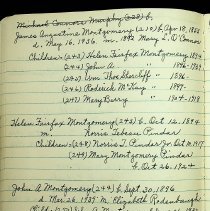 Michael Connor Murphy (238) b.
James Augustine Montgomery (210) b. Apr 18, 1866
d. May 16, 1936. m. 1892 Mary L. O'Connor
Children (243) Helen Fairfax Montgomery 1894
(244) John A " 1896-1939
(245) Wm Thos " 1896-
(246) Roderick McKay " 1899-
(247) Mary Berry " 1904-1918
Helen Fairfax Montgomery (243) b. Oct 12, 1894
m. Norris Pindar
Children (248) Norris T. Pindar Jr. b Oct 10, 1917
(249) Mary Montgomery Pindar
b. Oct 26, 1924
John A Montgomery (244) b. Sept 30, 1896
d. Mar 26, 1939 m. Elizabeth Rodenbough